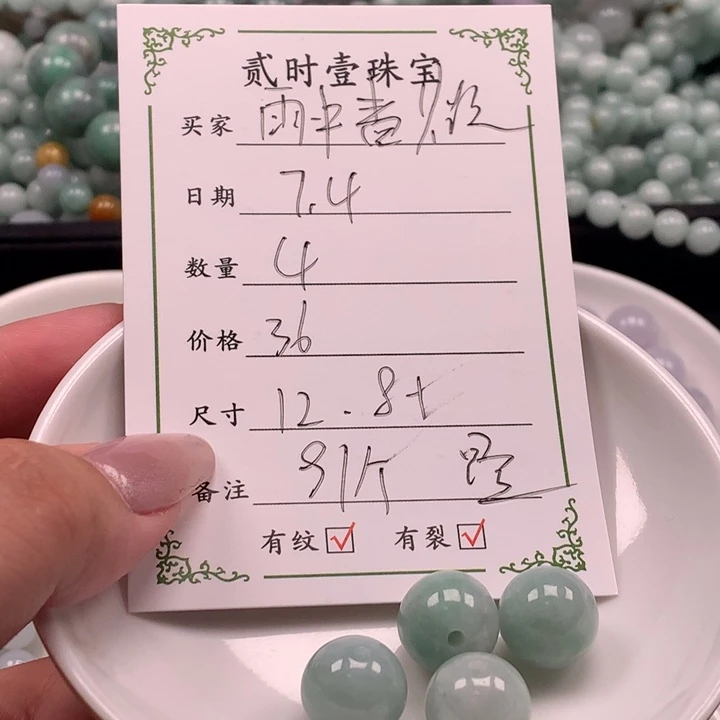 贰时壹珠宝
买家 雨中
日期 7.4
数量 4
价格 36
尺寸 12.8+
备注 91个
有纹 ☑ 有裂 ☑